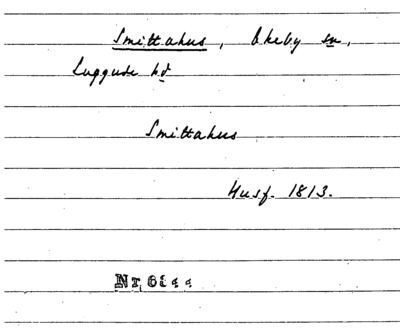 Smittahus, Ekeby sn,
Luggude hd
Smittahus
Husf. 1813.
Nr.